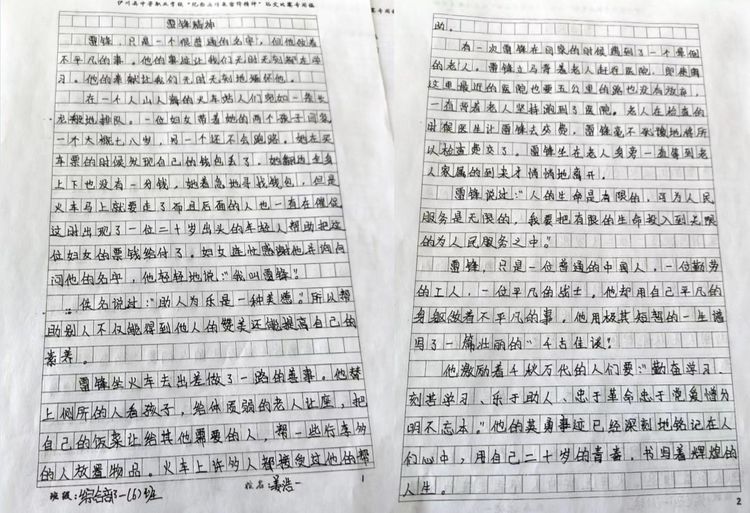 雷锋精神
雷锋,只是一个很普通的名字,但他做着
不平凡的事。他的事迹让我们无时无刻都在学
习。他的奉献让我们无时无刻地缅怀他。
在一个人山人海的火车站人们宛如一条长
龙般地排队。一位妇女带着她的两个孩子回家
一个大概七八岁,另一个还不会跑路。她在买
车票的时候发现自己的钱包丢了,她翻遍全身
上下也没有一分钱。她着急地寻找钱包,但是
火车马上就要走了而且后面的人也一直在催促
这时出现了一位二十岁出头的年轻人帮助把这
位妇女的票钱给付了。妇女连忙感谢他并询问
问他的名字,他轻轻地说:“我叫雷锋”。
佚名说过:“助人为乐是一种美德”所以帮
助别人不仅能得到他人的赞美还能提高自己的
素养。
雷锋坐火车去出差做了一路的善事。他替
上厕所的人看孩子,给体质弱的老人让座,把
自己的饭菜让给其他需要的人,帮一些行李多
的人放置物品。火车上许多人都接受过他的帮
班级:综合部一(6)班
姓名:姜浩一
1
助。
有一次雷锋在回家的时候遇到了一个晕倒
的老人。雷锋立马背着老人赶往医院,即使离
这里最近的医院也要五公里的路也没有放弃,
一直背着老人坚持跑到了医院。老人在检查的
时候医生让雷锋去交费,雷锋毫不犹豫地将所
以检查费交了。雷锋坐在老人身旁一直等到老
人家属的到来才悄悄地离开。
雷锋说过:“人的生命是有限的,可为人民
服务是无限的,我要把有限的生命投入到无限
的为人民服务之中。”
雷锋,只是一位普通的中国人,一位勤劳
的工人,一位平凡的战士。他却用自己平凡的
身躯做着不平凡的事。他用极其短暂的一生谱
写了一篇壮丽的“千古佳话”!
他激励着千秋万代的人们要:“勤奋学习、
刻苦学习、乐于助人、忠于革命忠于党爱憎分
明不忘本。”他的英勇事迹已经深刻地铭记在人
们心中,用自己二十岁的青春,书写着辉煌的
人生。
2